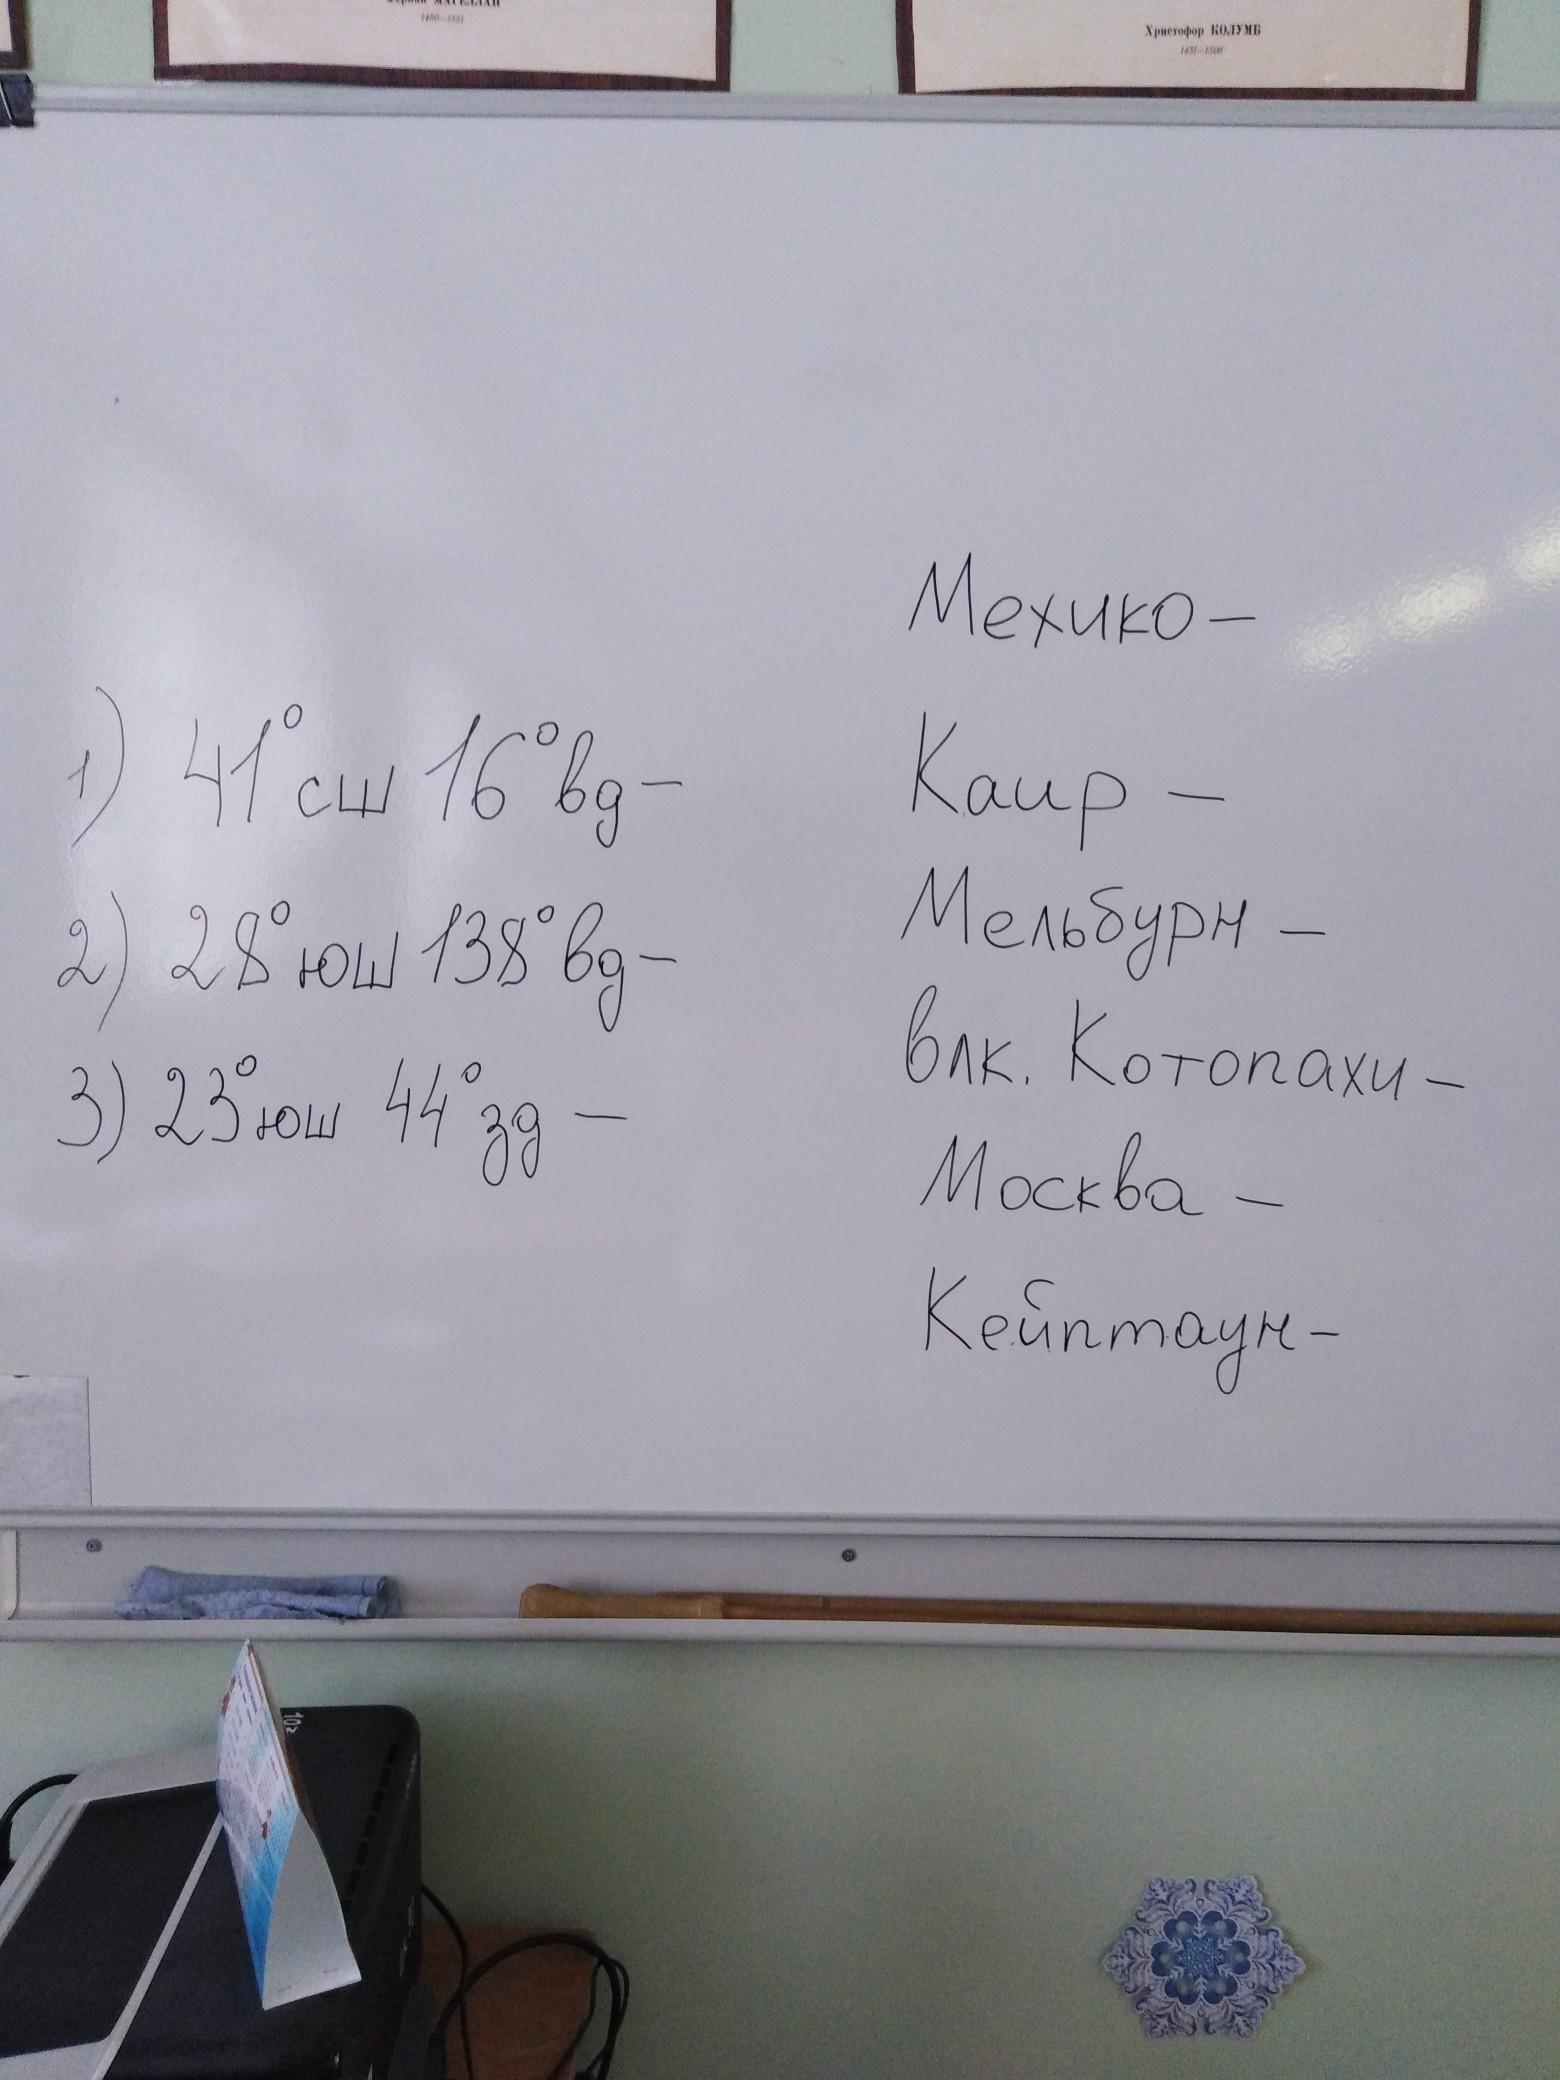 Фернан МАГЕЛЛАН
1480—1521
Христофор КОЛУМБ
1451—1506
1) 41° сш 16° вд —
2) 28° юш 138° вд —
3) 23° юш 44° зд —
Мехико —
Каир —
Мельбурн —
влк. Котопахи —
Москва —
Кейптаун —